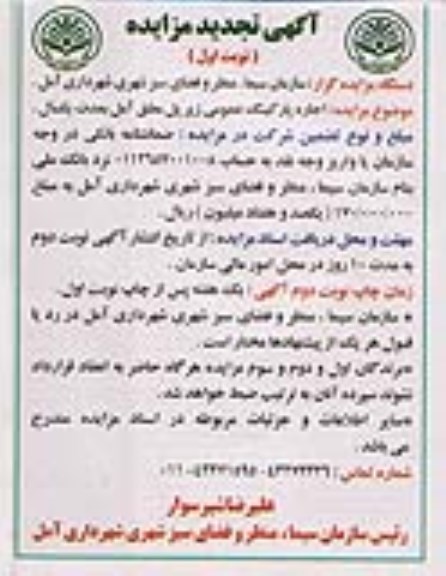 آگهی تجدید مزایده
( نوبت اول )
دستگاه مزایده گزار : سازمان سیما ، منظر و فضای سبز شهری شهرداری آمل .
موضوع مزایده : اجاره پارکینگ عمومی زیر پل معلق آمل بمدت یکسال .
مبلغ و نوع تضمین شرکت در مزایده : ضمانتنامه بانکی در وجه
سازمان یا واریز وجه نقد به حساب نزد بانک ملی
بنام سازمان سیما ، منظر و فضای سبز شهری شهرداری آمل به مبلغ
( یکصد و هفتاد میلیون ) ریال .
مهلت و محل دریافت اسناد مزایده : از تاریخ انتشار آگهی نوبت دوم
به مدت ۱۰ روز در محل امور مالی سازمان .
زمان چاپ نوبت دوم آگهی : یک هفته پس از چاپ نوبت اول .
* سازمان سیما ، منظر و فضای سبز شهری شهرداری آمل در رد یا
قبول هر یک از پیشنهادها مختار است .
*برندگان اول و دوم و سوم مزایده هرگاه حاضر به انعقاد قرارداد
نشوند سپرده آنان به ترتیب ضبط خواهد شد .
*سایر اطلاعات و جزئیات مربوطه در اسناد مزایده مندرج
می باشد .
شماره تماس :
علیرضا شیرسوار
رئیس سازمان سیما ، منظر و فضای سبز شهری شهرداری آمل